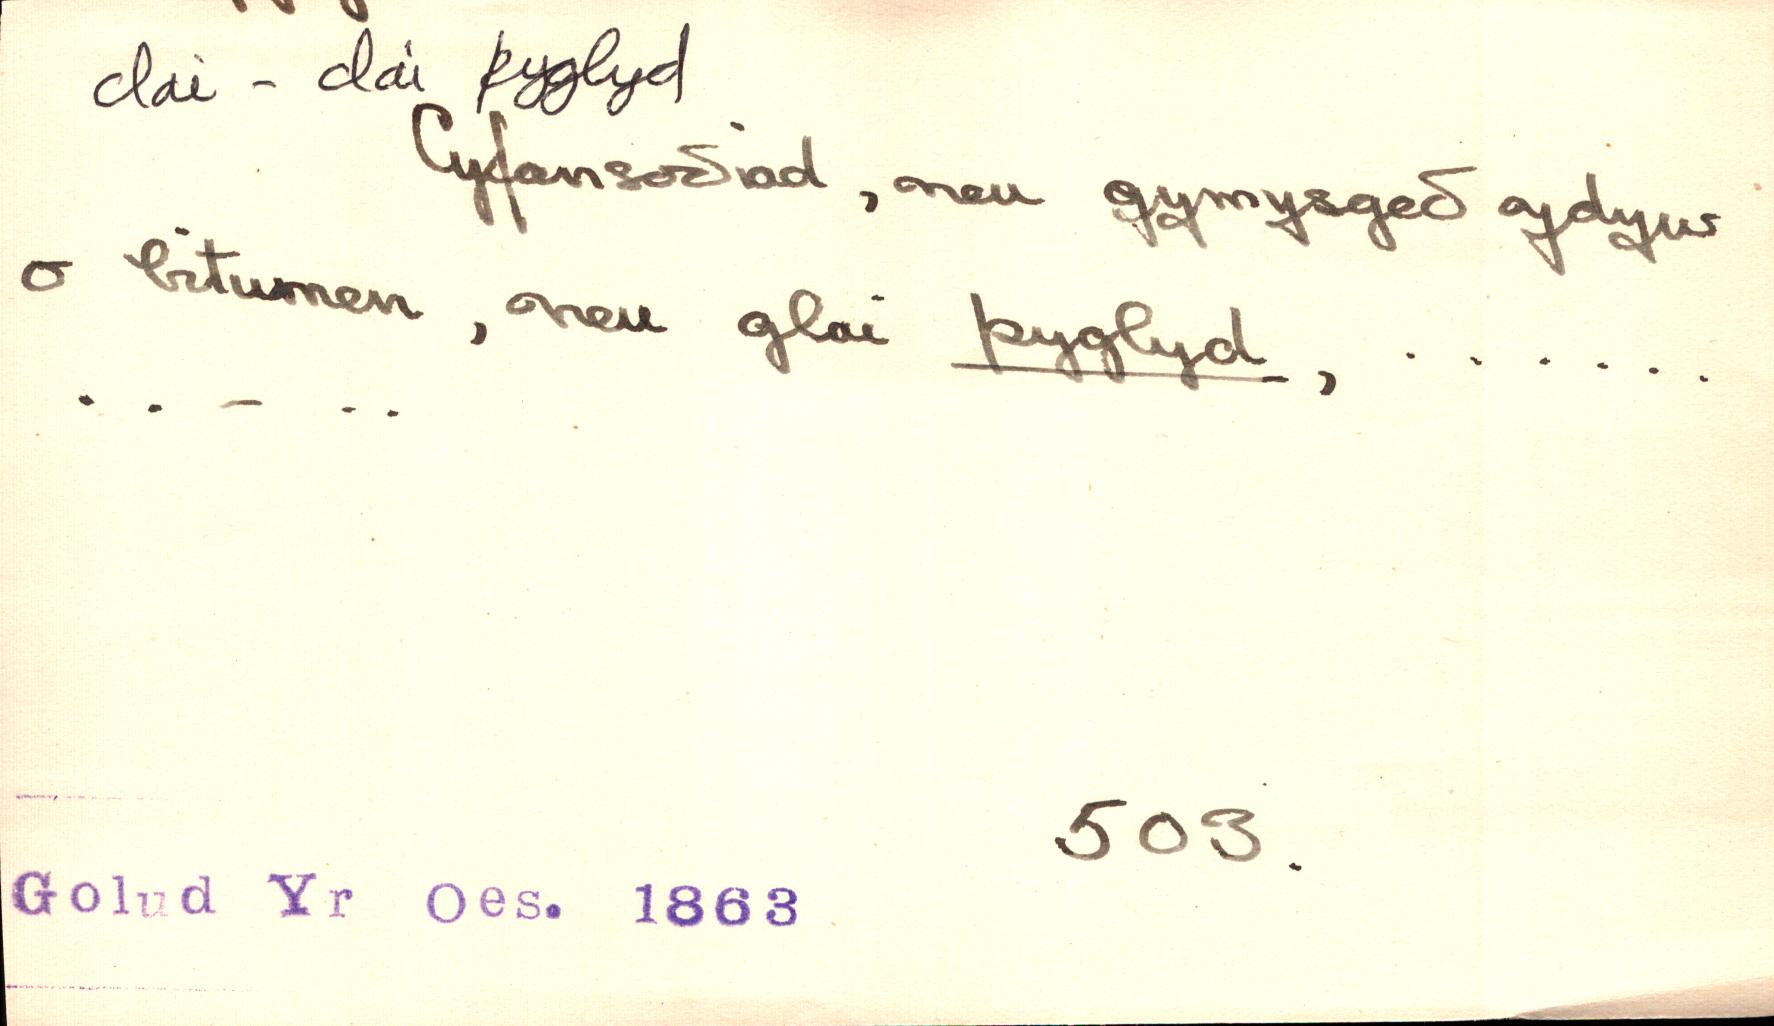 clai - clai pyglyd
Cyfansoðiad, neu gymysgeð ydyw
o bitumen, neu glai pyglyd, . . . . . .
. . – . .
503.
Golud Yr Oes. 1863